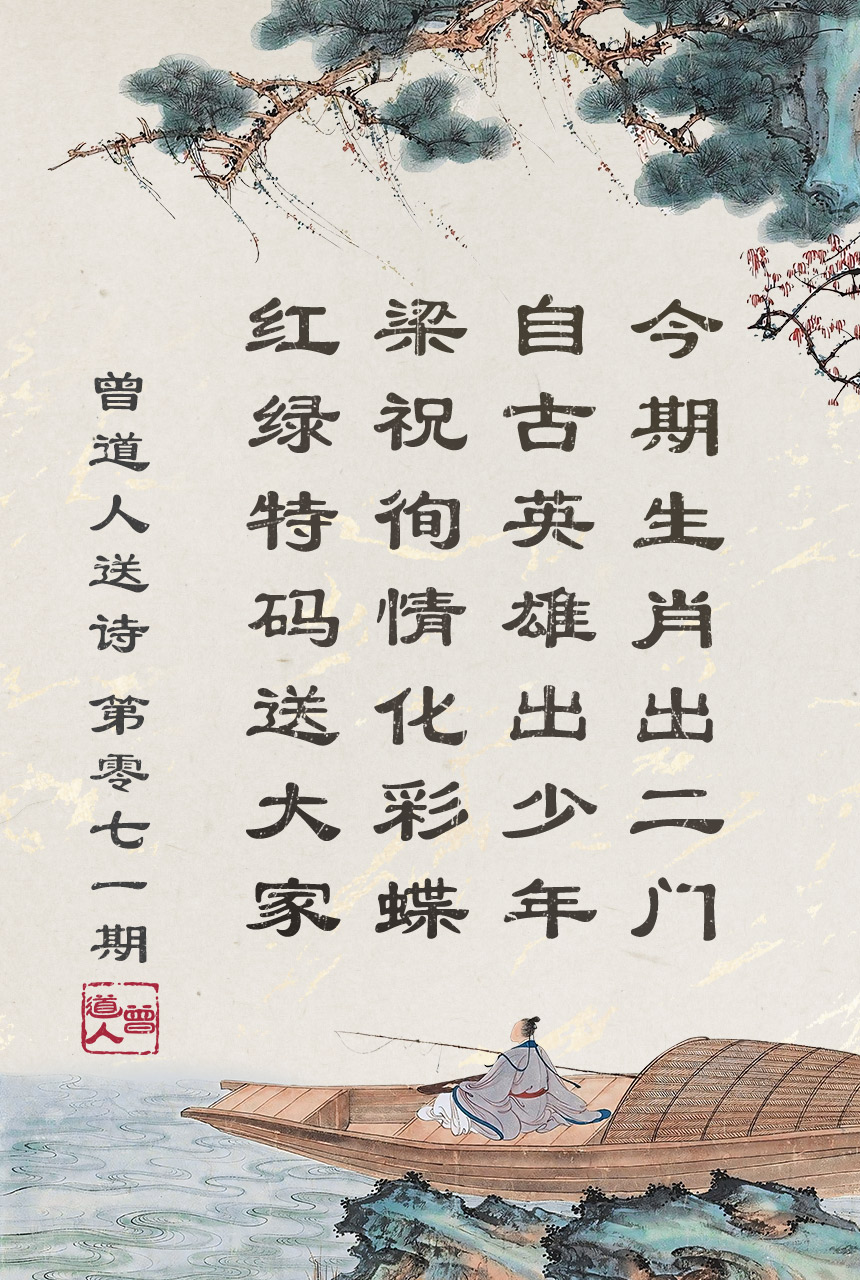 今期生肖出二门
自古英雄出少年
梁祝徇情化彩蝶
红绿特码送大家
曾道人送诗 第零七一期
曾道人